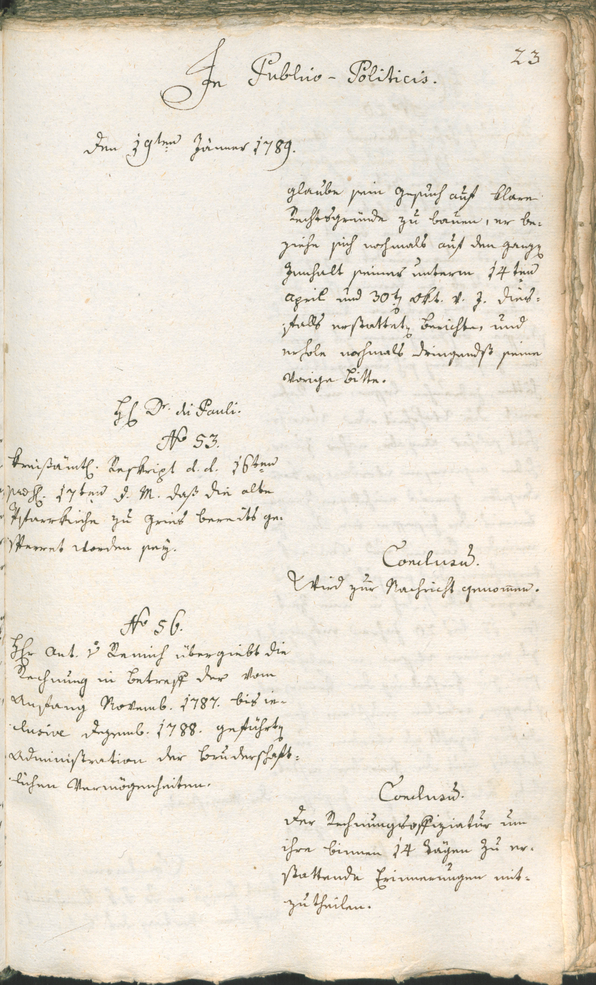 23
In Publico-Politicis.
den 19ten Jänner 1789.
glaube sein Gesuch auf klare
Rechtsgründe zu bauen, er be-
ziehe sich nochmals auf den ganz
Innhalt seines unterm 14ten
April und 30t. Okt. v. J. dies-
falls erstattet Berichte, und
erhole nochmals dringendst seine
vorige Bitte.
H. Dr. di Pauli.
No 53.
Kreisämtl. Reskript d. d. 16ten
17ten d. M. daß die alte
Pfarrkirche zu Gries bereits ge-
sperret worden sey.
Conclusum.
Wird zur Nachricht genommen.
No 56.
Hr Ant. v Remich übergiebt die
Rechnung in Betreff der vom
Anfang Novemb. 1787. bis in-
clusive Dezemb. 1788. geführt
Administration der Bruderschaft-
lichen Vermögenheiten.
Conclusum.
Der Rechnungsoffiziatur um
ihre binnen 14 Tägen zu er-
stattende Erinnerungen mit-
zutheilen.